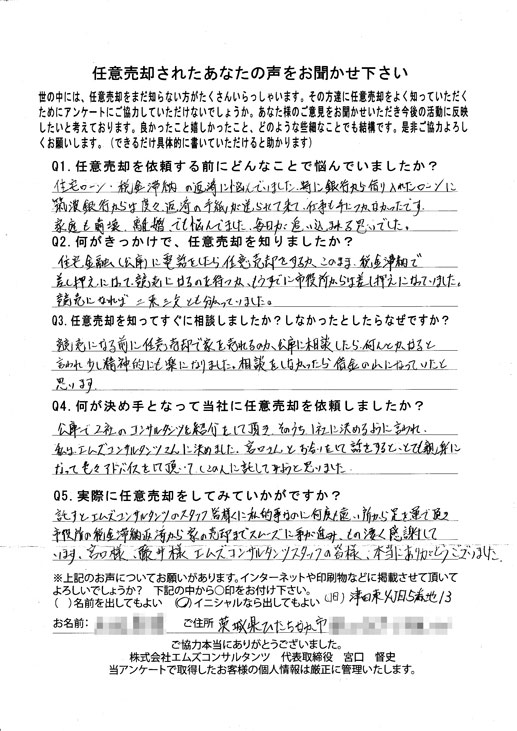 任意売却されたあなたの声をお聞かせ下さい
世の中には、任意売却をまだ知らない方がたくさんいらっしゃいます。その方達に任意売却をよく知っていただく
ためにアンケートにご協力していただけないでしょうか。あなた様のご意見をお聞かせいただき今後の活動に反映
したいと考えております。良かったこと嬉しかったこと、どのような些細なことでも結構です。是非ご協力よろし
くお願いします。（できるだけ具体的に書いていただけると助かります）
Q1. 任意売却を依頼する前にどんなことで悩んでいましたか？
住宅ローン・税金滞納の返済に悩んでいました。特に銀行から借り入れたローンに
筑波銀行からは度々返済の手紙が送られて来て、仕事も手につかなかったです。
家庭も崩壊、離婚でも悩んでました。毎日が追い込みある思いでした。
Q2. 何がきっかけで、任意売却を知りましたか？
住宅金融(公庫)に電話をしたら任意売却をするか、このまま、税金滞納で
差し押えになって競売になるのを待つか、もうすでに市役所からは差し押えになっていました。
競売になれば二束三文とも分っていました。
Q3. 任意売却を知ってすぐに相談しましたか？しなかったとしたらなぜですか？
競売になる前に任意売却で家を売れるのか、公庫に相談したら何んとかなると
言われ少し精神的にも楽になりました。相談をしなかったら借金の山になっていたと
思います
Q4. 何が決め手となって当社に任意売却を依頼しましたか？
公庫で2社のコンサルタンツを紹介をして頂き、そのうち1社に決めるように言われ、
私はエムズコンサルタンツさんに決めました。宮口さんとお会いをして話をすると、とても親身に
なって色々アドバイスをして頂いて、この人に託してみようと思いました。
Q5. 実際に任意売却をしてみていかがですか？
託すとエムズコンサルタンツのスタッフ皆様くに私的事なのに何度も遠い所から足を運で頂き
市役所の税金滞納返済から家の売却までスムーズに事が進み、心の深く感謝して
います。宮口様、藤井様 エムズコンサルタンツスタッフの皆様、本当にありがとうございました
※上記のお声についてお願いがあります。インターネットや印刷物などに掲載させて頂いて
よろしいでしょうか？ 下記の中から○印をお付け下さい。
（ ）名前を出してもよい （○）イニシャルなら出してもよい (旧) 津田東4丁目5番地13
お名前： ご住所 茨城県ひたちなか市
ご協力本当にありがとうございました。
株式会社エムズコンサルタンツ 代表取締役 宮口 督史
当アンケートで取得したお客様の個人情報は厳正に管理いたします。